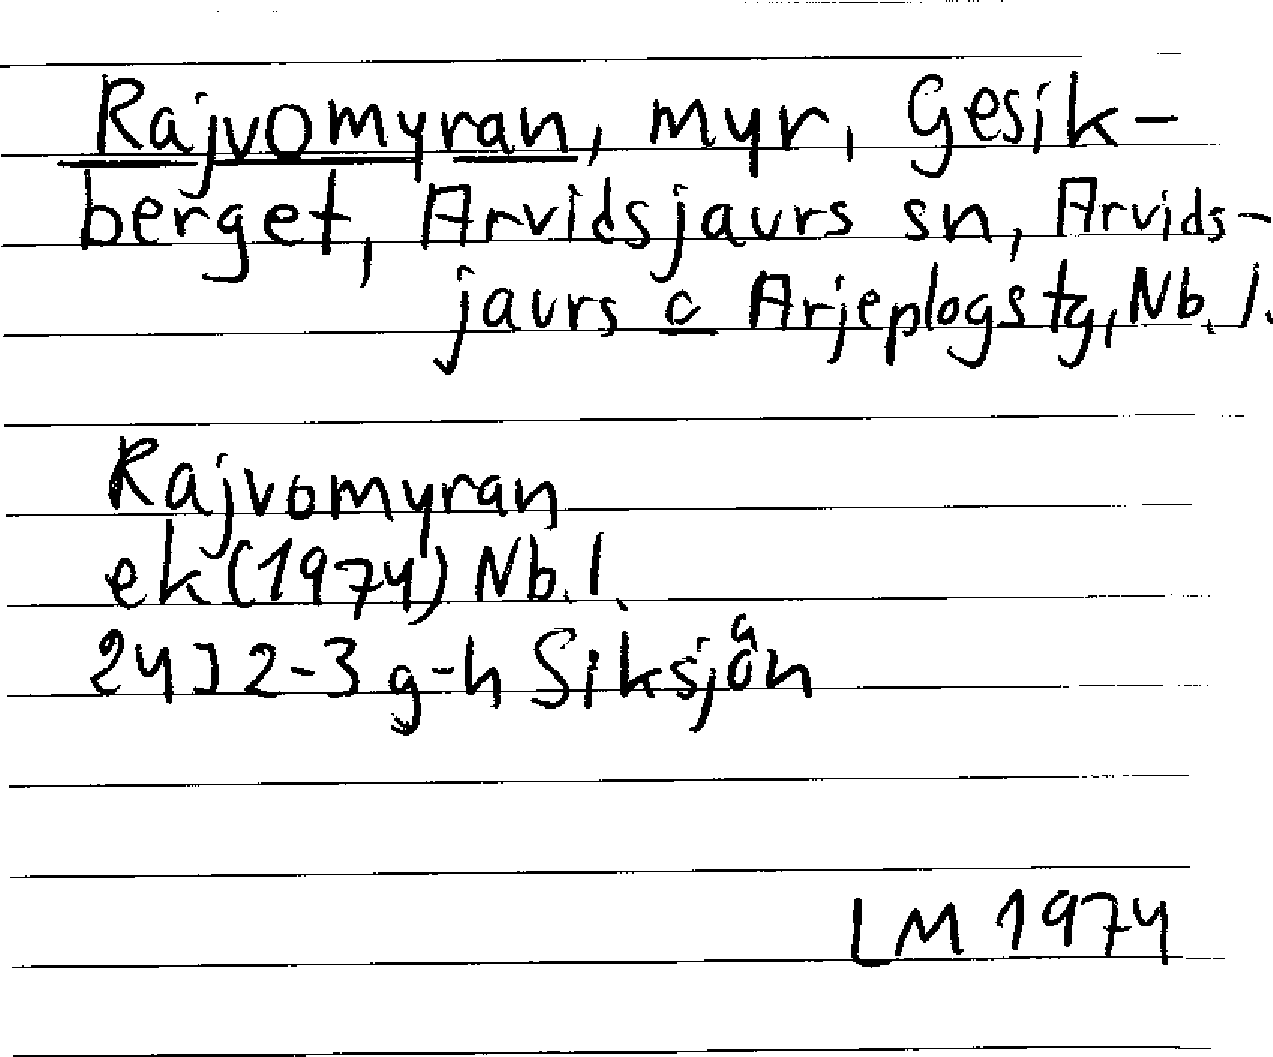 Rajvomyran, myr, Gesik-
berget, Arvidsjaurs sn, Arvids-
jaurs o Arjeplogs tg, Nb. l.
Rajvomyran
ek (1974) Nb. l.
24J 2-3 g-h Siksjön
LM 1974